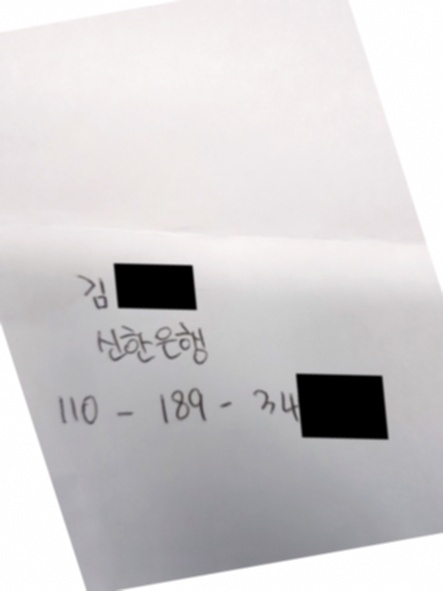 김
신한은행
110 - 189 - 34